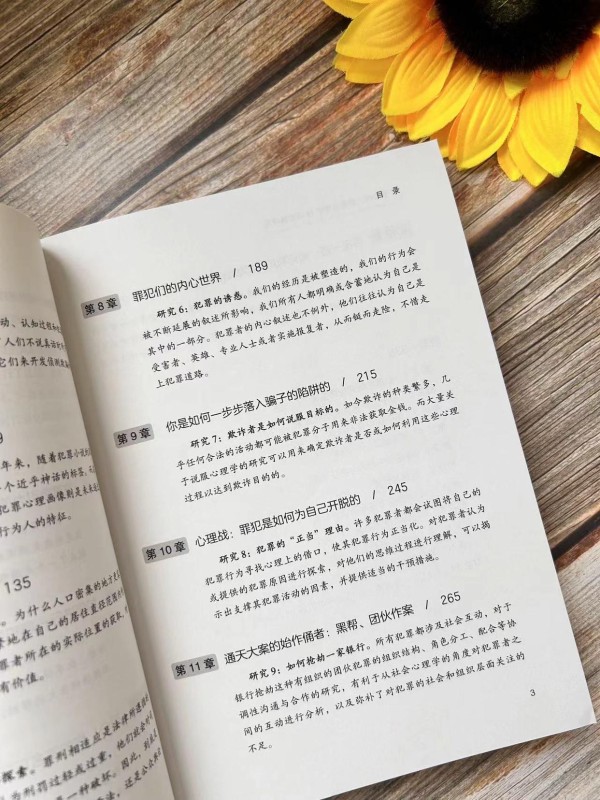 动、认知过程和
人们不说真话
它们来开发侦测
9
年来，随着犯罪小说
个近乎神话的标签，
犯罪心理画像则是
行为人的特征。
135
。为什么人口密集的地方
地在自己的居住直径范围
罪者所在的实际位置的获取，
有价值。
探索。罪刑相适应是法律所遵循
为刑罚过轻或过重，他们就会
是一种破坏。因此，到底
法，还是公众
目 录
第 8 章 罪犯们的内心世界 / 189
研究 6：犯罪的诱惑。我们的经历是被塑造的，我们的行为会
被不断延展的叙述所影响，我们所有人都明确或含蓄地认为自己是
其中的一部分。犯罪者的内心叙述也不例外，他们往往认为自己是
受害者、英雄、专业人士或者实施报复者，从而铤而走险，不惜走
上犯罪道路。
第 9 章 你是如何一步步落入骗子的陷阱的 / 215
研究 7：欺诈者是如何说服目标的。如今欺诈的种类繁多，几
乎任何合法的活动都可能被犯罪分子用来非法获取金钱。而大量关
于说服心理学的研究可以用来确定欺诈者是否或如何利用这些心理
过程以达到欺诈目的的。
第 10 章 心理战：罪犯是如何为自己开脱的 / 245
研究 8：犯罪的“正当”理由。许多犯罪者都会试图将自己的
犯罪行为寻找心理上的借口，使其犯罪行为正当化。对犯罪者认为
或提供的犯罪原因进行探索，对他们的思维过程进行理解，可以揭
示出支撑其犯罪活动的因素，并提供适当的干预措施。
第 11 章 通天大案的始作俑者：黑帮、团伙作案 / 265
研究 9：如何抢劫一家银行。所有犯罪都涉及社会互动，对于
银行抢劫这种有组织的团伙犯罪的组织结构、角色分工，配合等协
调性沟通与合作的研究，有利于从社会心理学的角度对犯罪者之
间的互动进行分析，以及弥补了对犯罪的社会和组织层面关注的
不足。
3